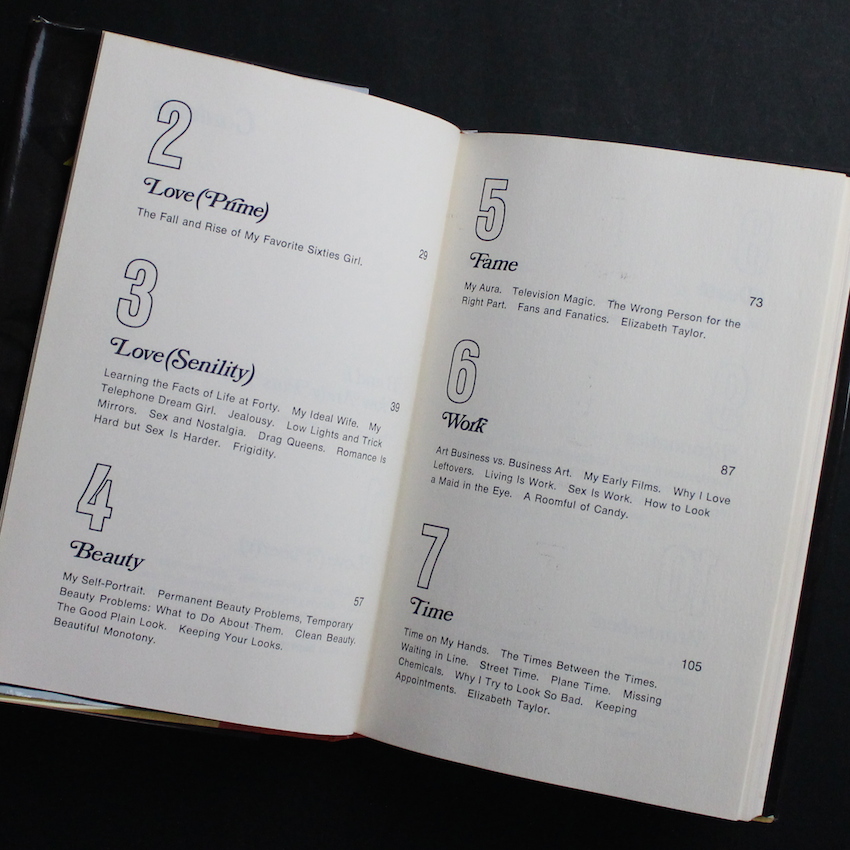 2
Love (Prime)
The Fall and Rise of My Favorite Sixties Girl. 29
3
Love (Senility)
39
Learning the Facts of Life at Forty. My Ideal Wife. My
Telephone Dream Girl. Jealousy. Low Lights and Trick
Mirrors. Sex and Nostalgia. Drag Queens. Romance Is
Hard but Sex Is Harder. Frigidity.
4
Beauty
57
My Self-Portrait. Permanent Beauty Problems, Temporary
Beauty Problems: What to Do About Them. Clean Beauty.
The Good Plain Look. Keeping Your Looks.
Beautiful Monotony.
5
Fame
73
My Aura. Television Magic. The Wrong Person for the
Right Part. Fans and Fanatics. Elizabeth Taylor.
6
Work
87
Art Business vs. Business Art. My Early Films. Why I Love
Leftovers. Living Is Work. Sex Is Work. How to Look
a Maid in the Eye. A Roomful of Candy.
7
Time
105
Time on My Hands. The Times Between the Times.
Waiting in Line. Street Time. Plane Time. Missing
Chemicals. Why I Try to Look So Bad. Keeping
Appointments. Elizabeth Taylor.